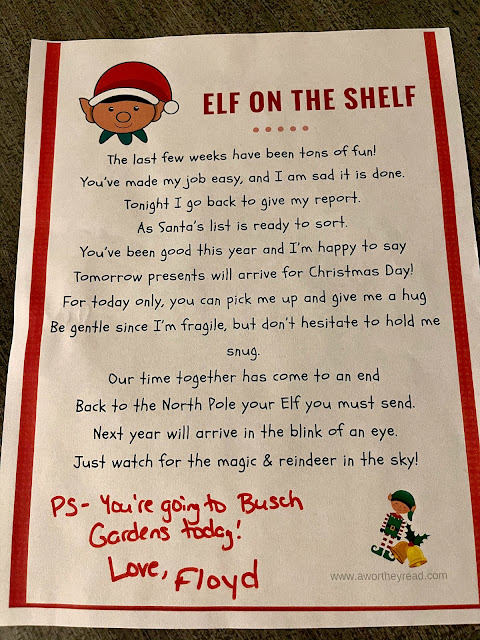 ELF ON THE SHELF
The last few weeks have been tons of fun!
You've made my job easy, and I am sad it is done.
Tonight I go back to give my report.
As Santa's list is ready to sort.
You've been good this year and I'm happy to say
Tomorrow presents will arrive for Christmas Day!
For today only, you can pick me up and give me a hug
Be gentle since I'm fragile, but don't hesitate to hold me
snug.
Our time together has come to an end
Back to the North Pole your Elf you must send.
Next year will arrive in the blink of an eye.
Just watch for the magic & reindeer in the sky!
PS- You're going to Busch
Gardens today!
Love, Floyd
www.awortheyread.com